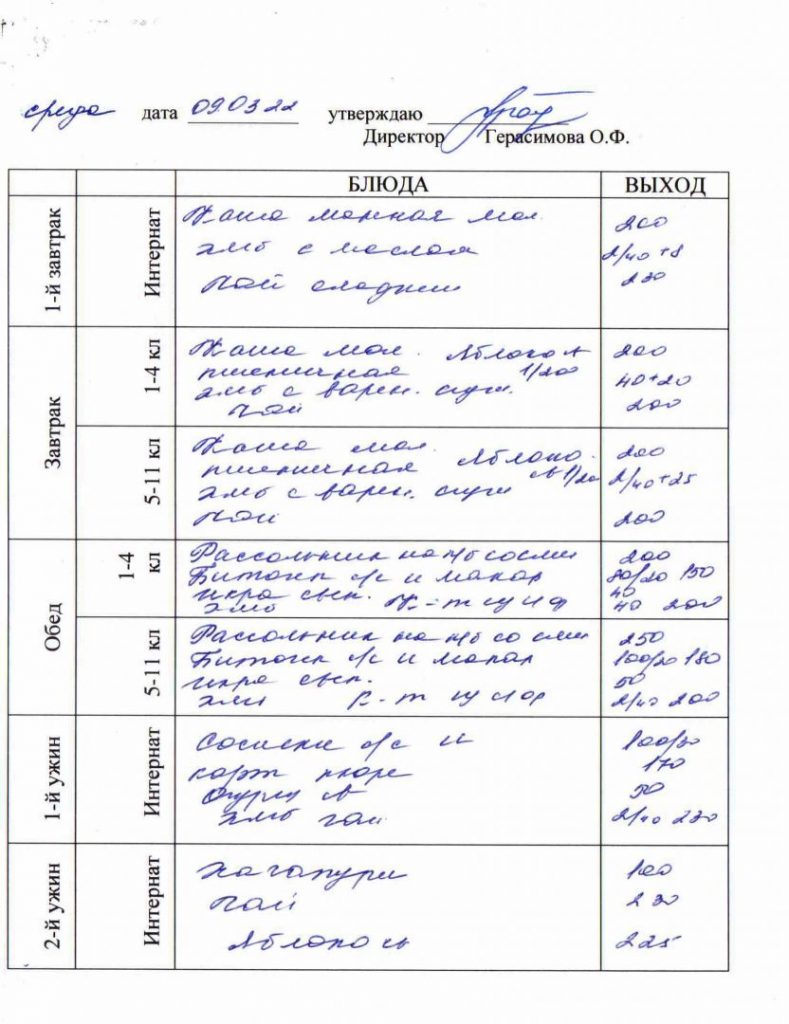 среда дата 09.03.22 утверждаю
Директор Герасимова О.Ф.
БЛЮДА ВЫХОД
1-й завтрак Интернат
Каша манная мол. 200
хлеб с маслом 2/40+8
Чай сладкий 230
Завтрак
1-4 кл
Каша мол. Яблоко 200
пшеничная 1/200
хлеб с варен. сгущ. 40+20
Чай 200
5-11 кл
Каша мол. 200
пшеничная Яблоко
хлеб с варен. сгущ 2/40+25
Чай 200
Обед
1-4 кл
Рассольник на м/б со см 200
Биточки с/с и макар 80/20 150
икра свек. 40
хлеб К-т 40 200
5-11 кл
Рассольник на м/б со см 250
Биточки с/с и макар 100/30 180
икра свек. 50
хлеб К-т 2/40 200
1-й ужин Интернат
Сосиски с/с и 100/30
карт пюре 170
Огурец 50
хлеб чай 2/40 230
2-й ужин Интернат
Хачапури 100
Чай 230
Яблоко 225